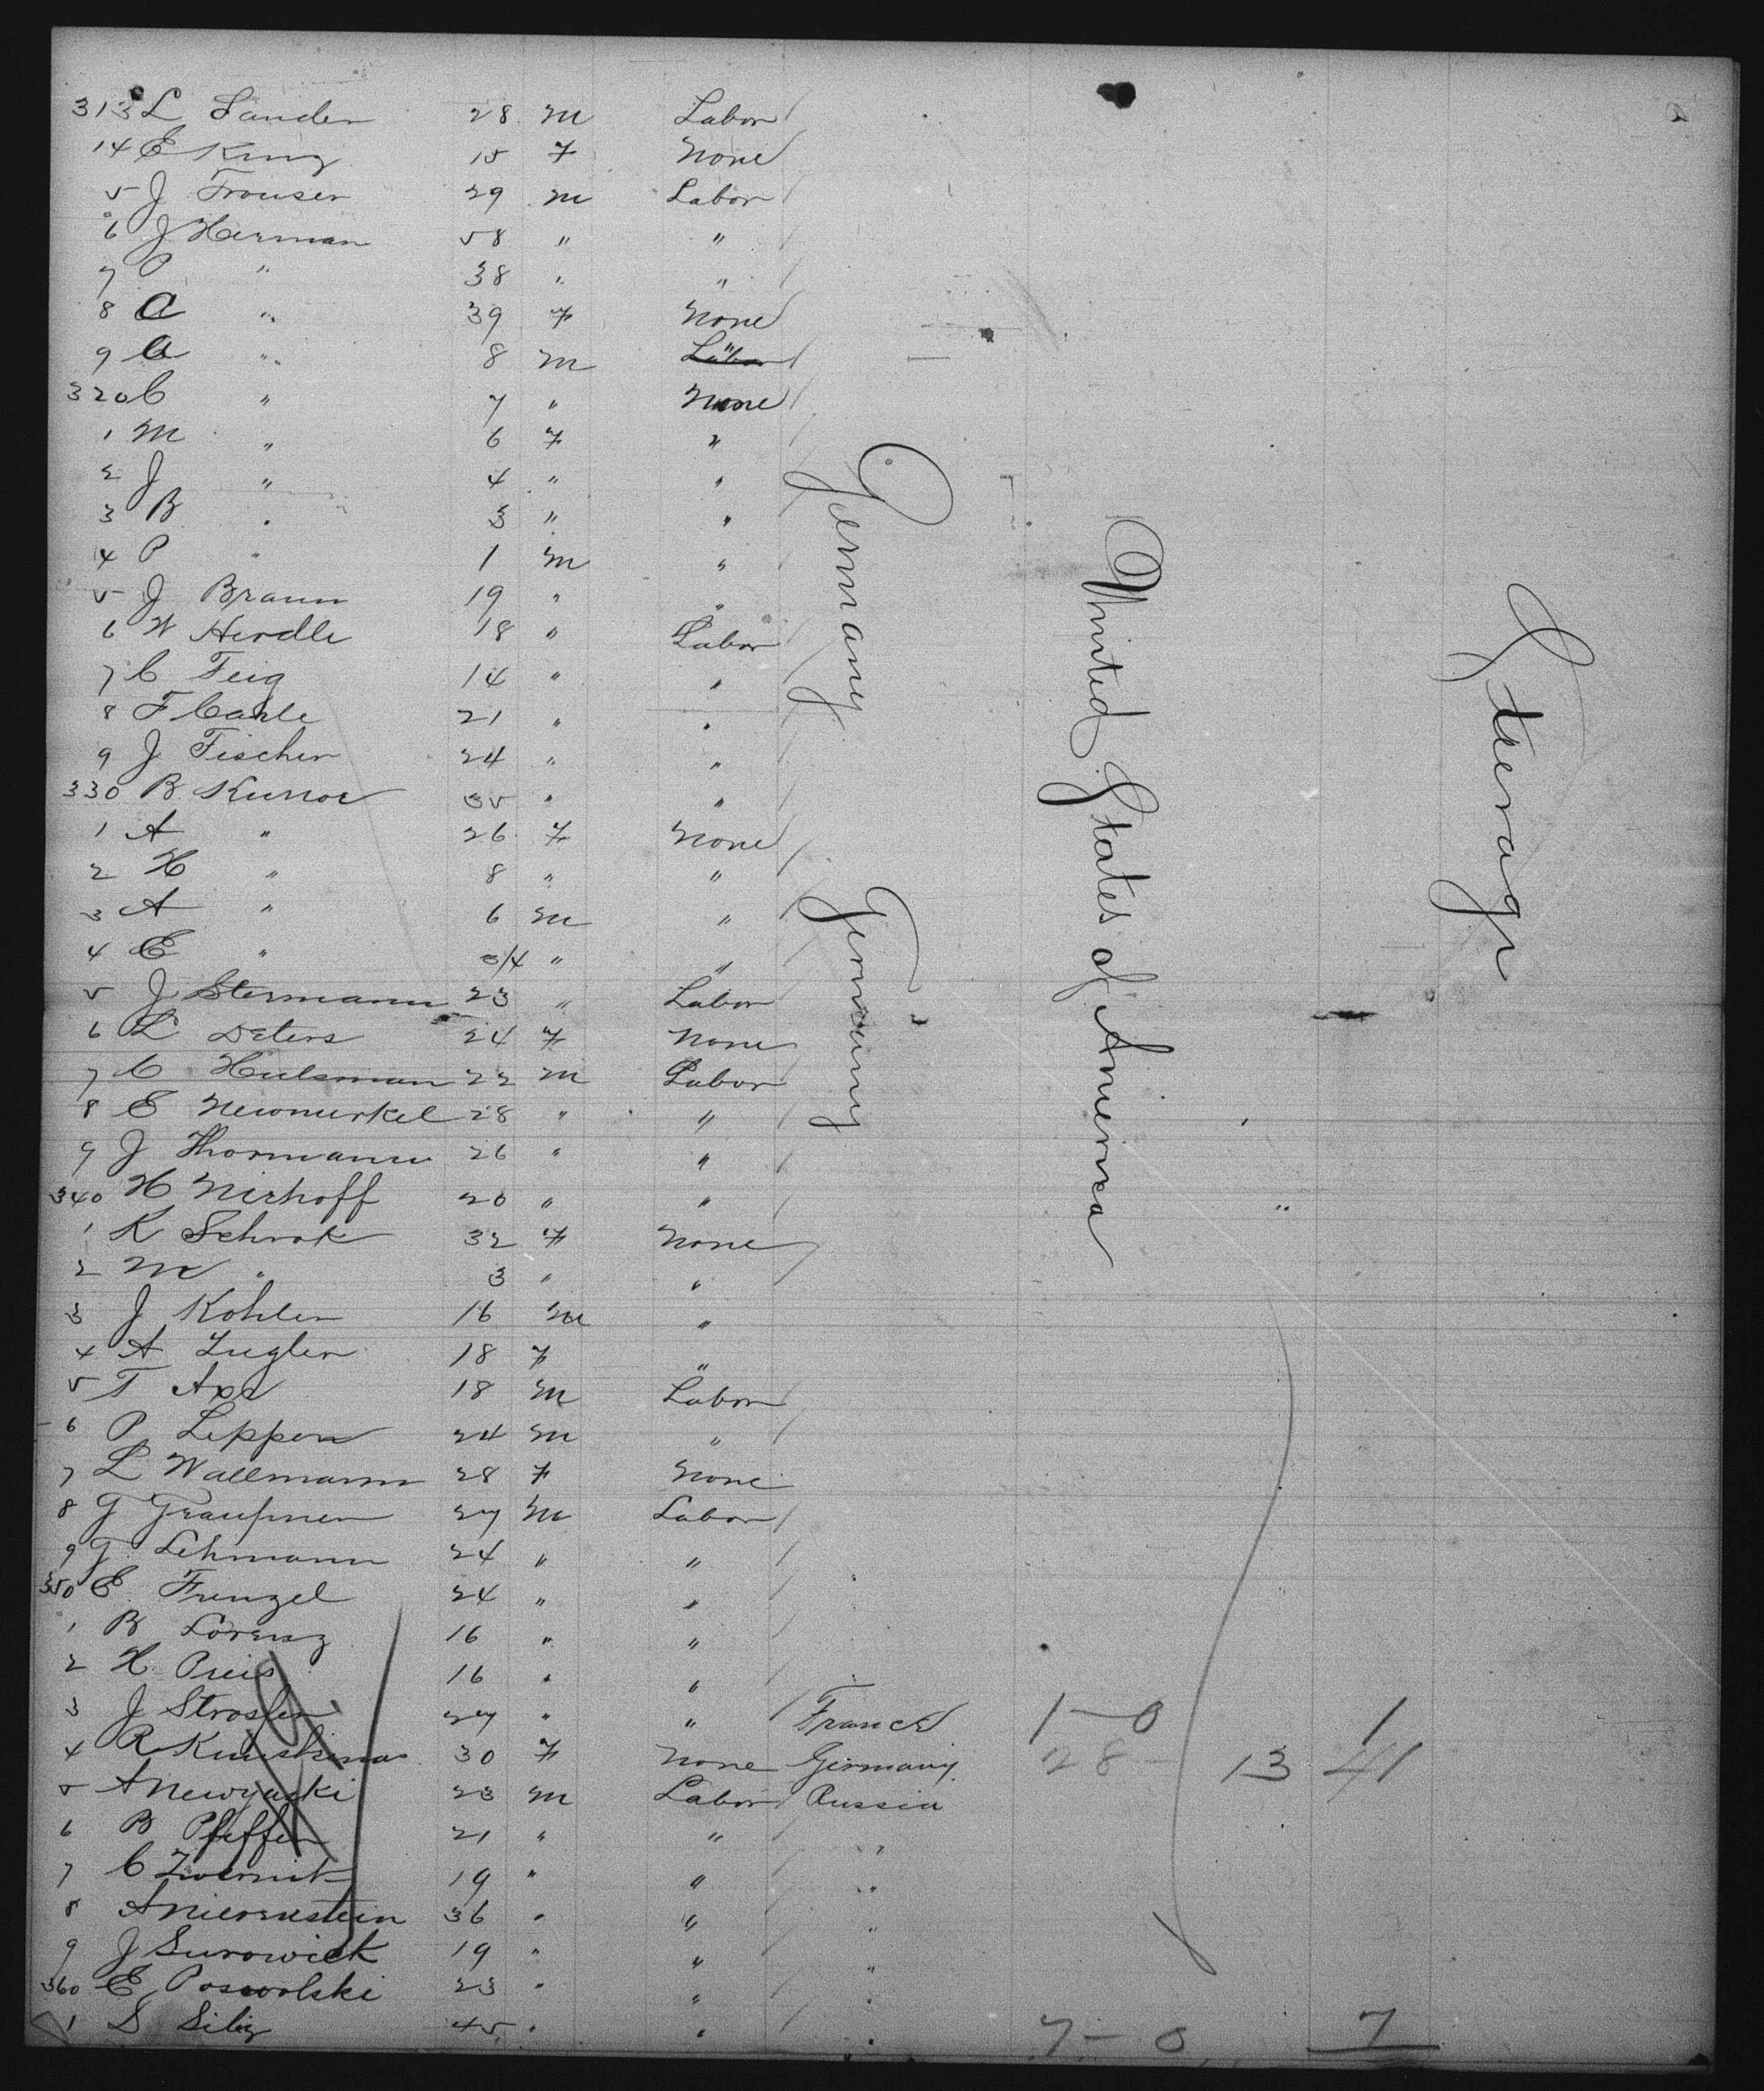 313 L Sander 28 M Labor
14 E King 15 F None
5 J Trouser 29 M Labor
6 J Herman 58 " "
7 P " 38 " "
8 A " 39 F None
9 A " 8 M "
320 C " 7 " None
1 M " 6 F "
2 J " 4 " "
3 B " 3 " "
4 P " 1 M "
5 J Braun 19 " "
6 W Herdle 18 " Labor
7 C Feig 14 " "
8 F Carle 21 " "
9 J Fischer 24 " "
330 B 35 " "
1 A " 26 F None
2 H " 8 " "
3 A " 6 M "
4 E " 3/4 " "
5 J Stermann 23 " Labor
6 L Deters 24 F None
7 C Hulsman 22 M Labor
8 E 28 " "
9 J Thormann 26 " "
340 H Nirhoff 20 " "
1 K Schrok 32 F None
2 M " 3 " "
3 J Kohler 16 M "
4 A 18 F "
5 T Axe 18 M Labor
6 P Leppen 24 M "
7 L Wallmann 28 F None
8 G Graupner 27 M Labor
9 G Lehmann 24 " "
350 E Frenzel 24 " "
1 B Lorenz 16 " "
2 H Preis 16 " "
3 J 27 " " France 1-0 1
4 R 30 F None Germany 28 - 13 41
5 A 23 M Labor Russia
6 B Pfeffer 21 " " "
7 C 19 " " "
8 A Nierenstein 36 " " "
9 J Surowick 19 " " "
360 E Poswolski 23 " " "
1 S 45 " " " 7-0 7
Germany
Germany
United States of America
Steerage